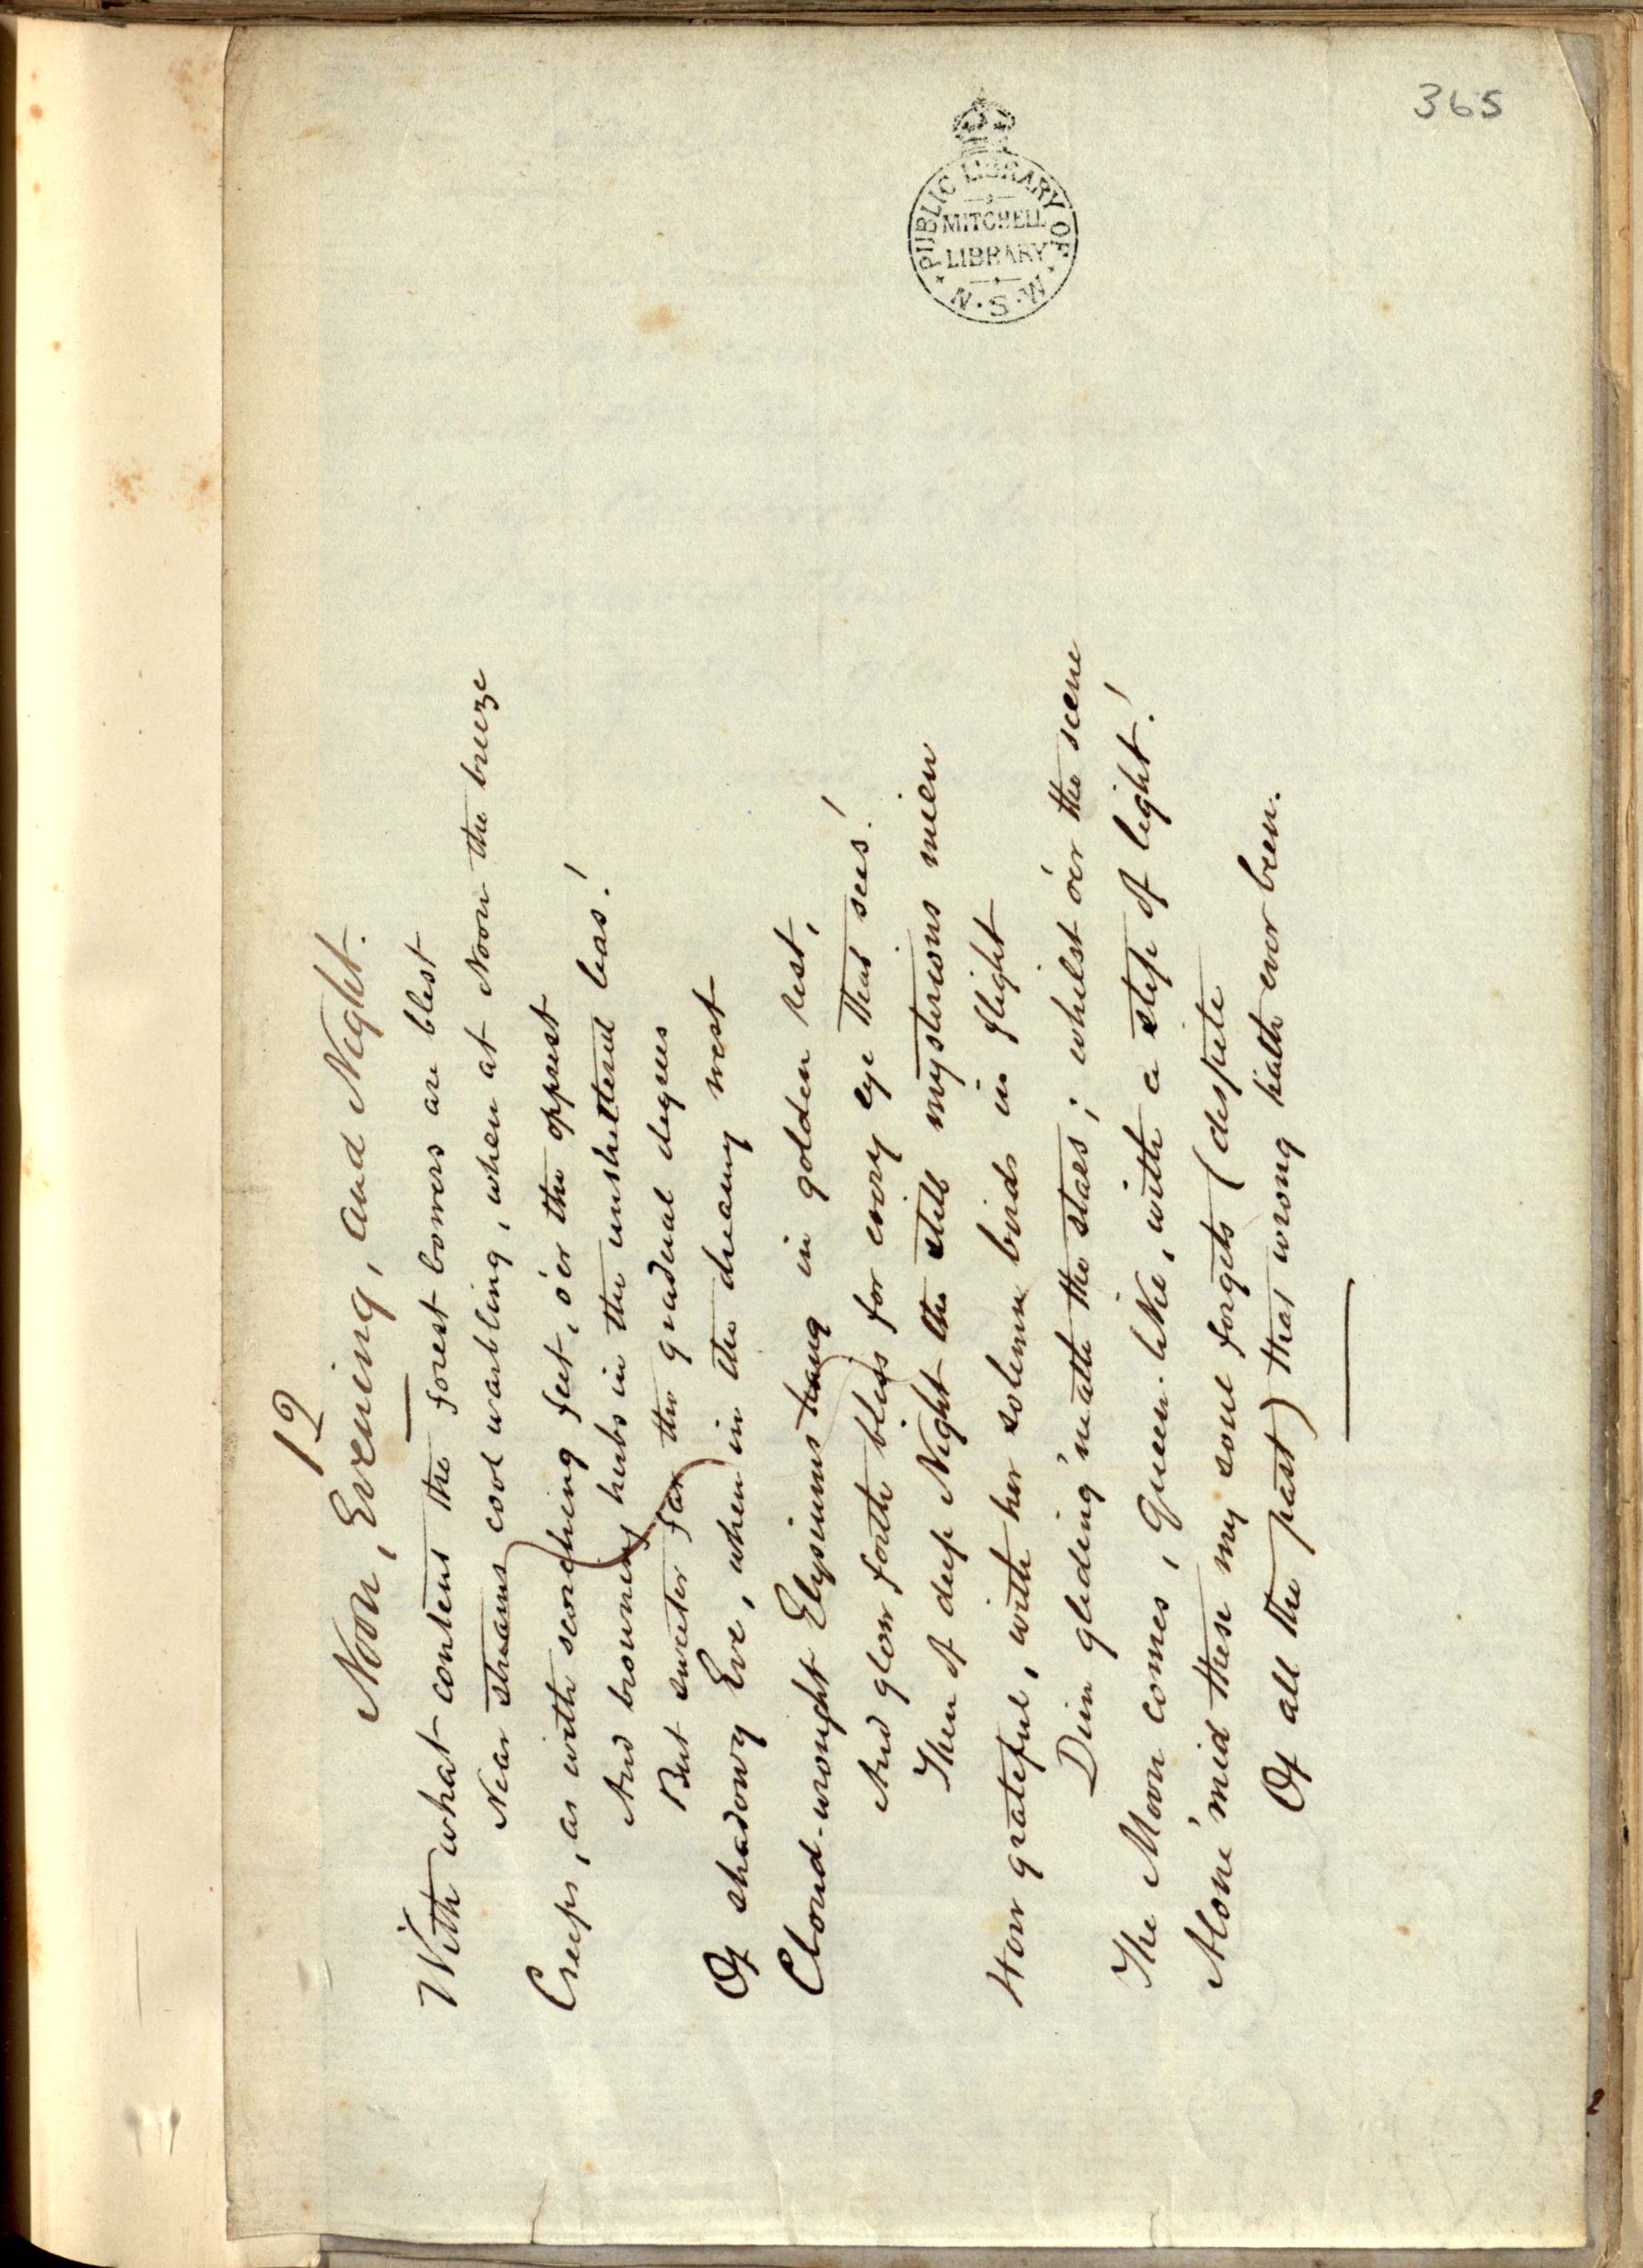 365
PUBLIC LIBRARY OF N.S.W.
MITCHELL
LIBRARY
12
Noon, Evening, and Night.
With what content the forest bowers are blest
Near streams cool warbling, when at Noon the breeze
Creeps, as with scorching feet, o'er the opprest
And browning herbs in the unsheltered leas!
But sweeter far the gradual degrees
Of shadowy Eve, when in the dreamy west
Cloud-wrought Elysiums hang in golden rest,
And glow forth bliss for every eye that sees!
Then of deep Night the still mysterious mien
How grateful, with her solemn birds in flight
Dim gliding 'neath the stars; whilst o'er the scene
The Moon comes, Queen-like, with a step of light!
Alone 'mid these my soul forgets (despite
Of all the past) that wrong hath ever been.